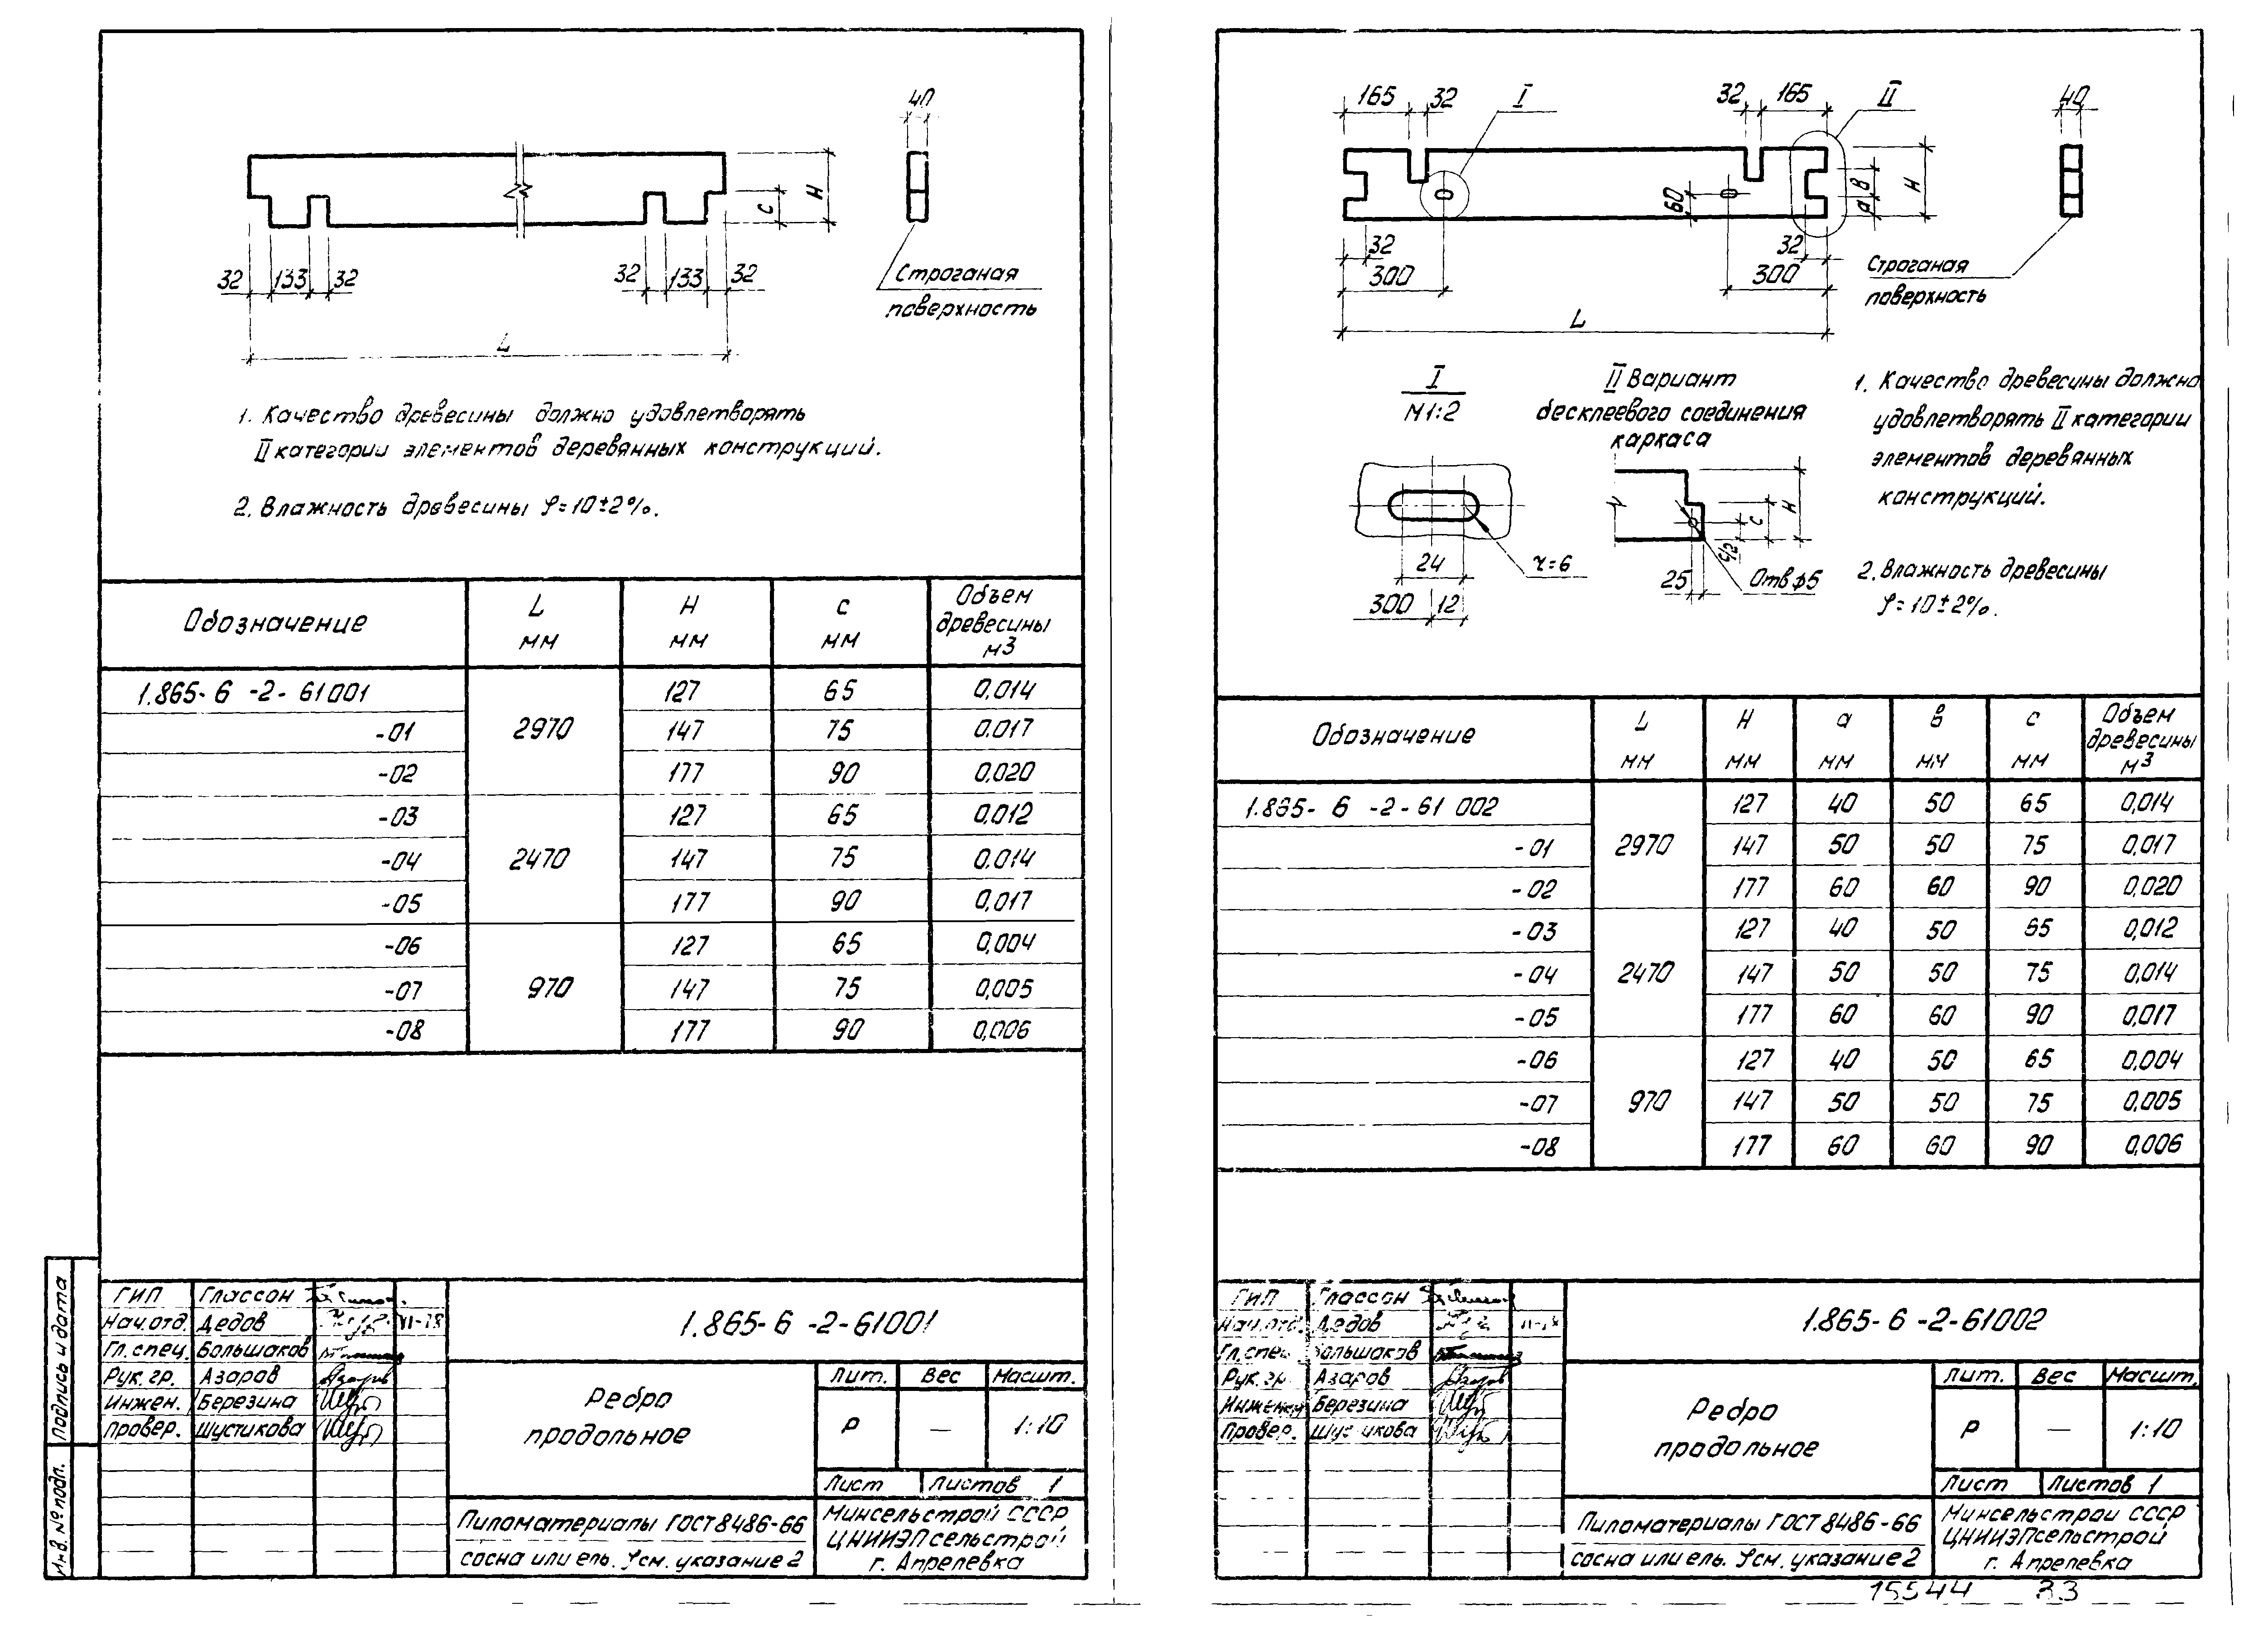 40
H
c
32 133 32
32 133 32
L
Строганая
поверхность
1. Качество древесины должно удовлетворять
II категории элементов деревянных конструкций.
2. Влажность древесины φ=10±2%.
Обозначение L мм H мм c мм Объем древесины м3
1.865-6-2-61001 2970 127 65 0,014
-01 147 75 0.017
-02 177 90 0,020
-03 2470 127 65 0,012
-04 147 75 0.014
-05 177 90 0,017
-06 970 127 65 0,004
-07 147 75 0,005
-08 177 90 0,006
Подпись и дата
Инв. № подл.
ГИП Глассон
Нач.отд. Дедов VI-78
Гл.спец. Большаков
Рук.гр. Азаров
Инжен. Березина
Провер. Шустикова
1.865-6-2-61001
Ребро
продольное
Лит. Вес Масшт.
Р — 1:10
Лист Листов 1
Пиломатериалы ГОСТ 8486-66
сосна или ель. φ см. указание 2
Минсельстрой СССР
ЦНИИЭПсельстрой
г. Апрелевка
165 32 I 32 165 II 40
60 а в H
32 32
300 300
L
Строганая
поверхность
I
М1:2
24
300 12
r=6
II Вариант
бесклеевого соединения
каркаса
c/2 c H
25 Отв ф5
1. Качество древесины должно
удовлетворять II категории
элементов деревянных
конструкций.
2. Влажность древесины
φ=10±2%.
Обозначение L мм H мм а мм в мм c мм Объем древесины м3
1.865-6-2-61 002 2970 127 40 50 65 0,014
-01 147 50 50 75 0,017
-02 177 60 60 90 0,020
-03 2470 127 40 50 65 0,012
-04 147 50 50 75 0,014
-05 177 60 60 90 0,017
-06 970 127 40 50 65 0.004
-07 147 50 50 75 0.005
-08 177 60 60 90 0,006
ГИП Глассон
Нач.отд. Дедов
Гл.спец Большаков
Рук.гр. Азаров
Инженер Березина
Провер. Шустикова
1.865-6-2-61002
Ребро
продольное
Лит. Вес Масшт.
Р — 1:10
Лист Листов 1
Пиломатериалы ГОСТ 8486-66
сосна или ель. φ см. указание 2
Минсельстрой СССР
ЦНИИЭПсельстрой
г. Апрелевка
15544 33